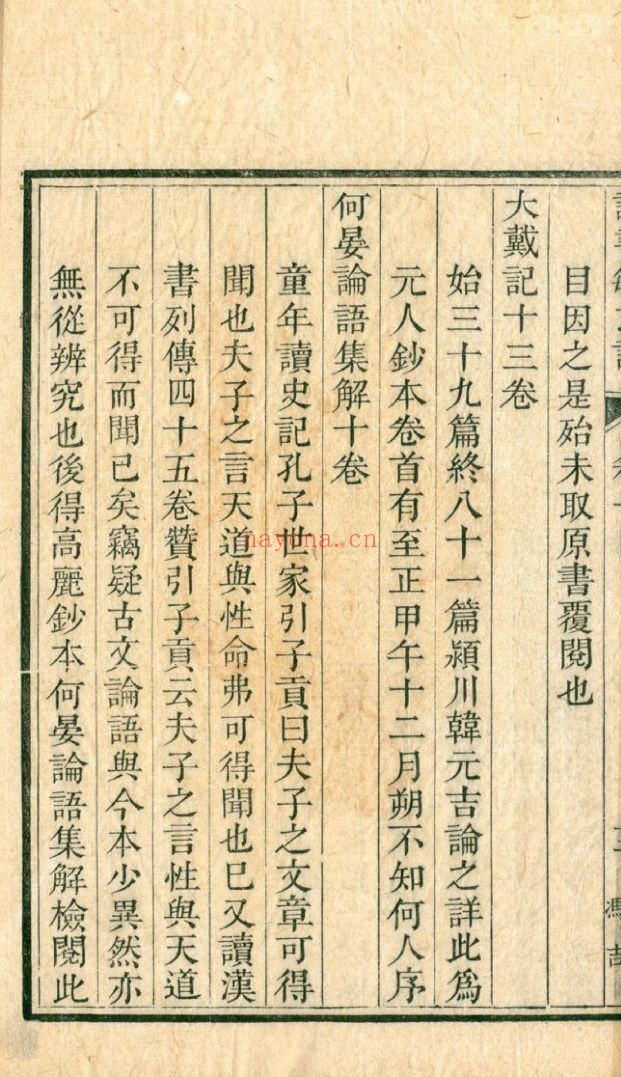 目因之是殆未取原書覆閱也
大戴記十三卷
始三十九篇終八十一篇潁川韓元吉論之詳此爲
元人鈔本卷首有至正甲午十二月朔不知何人序
何晏論語集解十卷
童年讀史記孔子世家引子貢曰夫子之文章可得
聞也夫子之言天道與性命弗可得聞也已又讀漢
書列傳四十五卷贊引子貢云夫子之言性與天道
不可得而聞已矣竊疑古文論語與今本少異然亦
無從辨究也後得高麗鈔本何晏論語集解檢閱此
nayona.cn